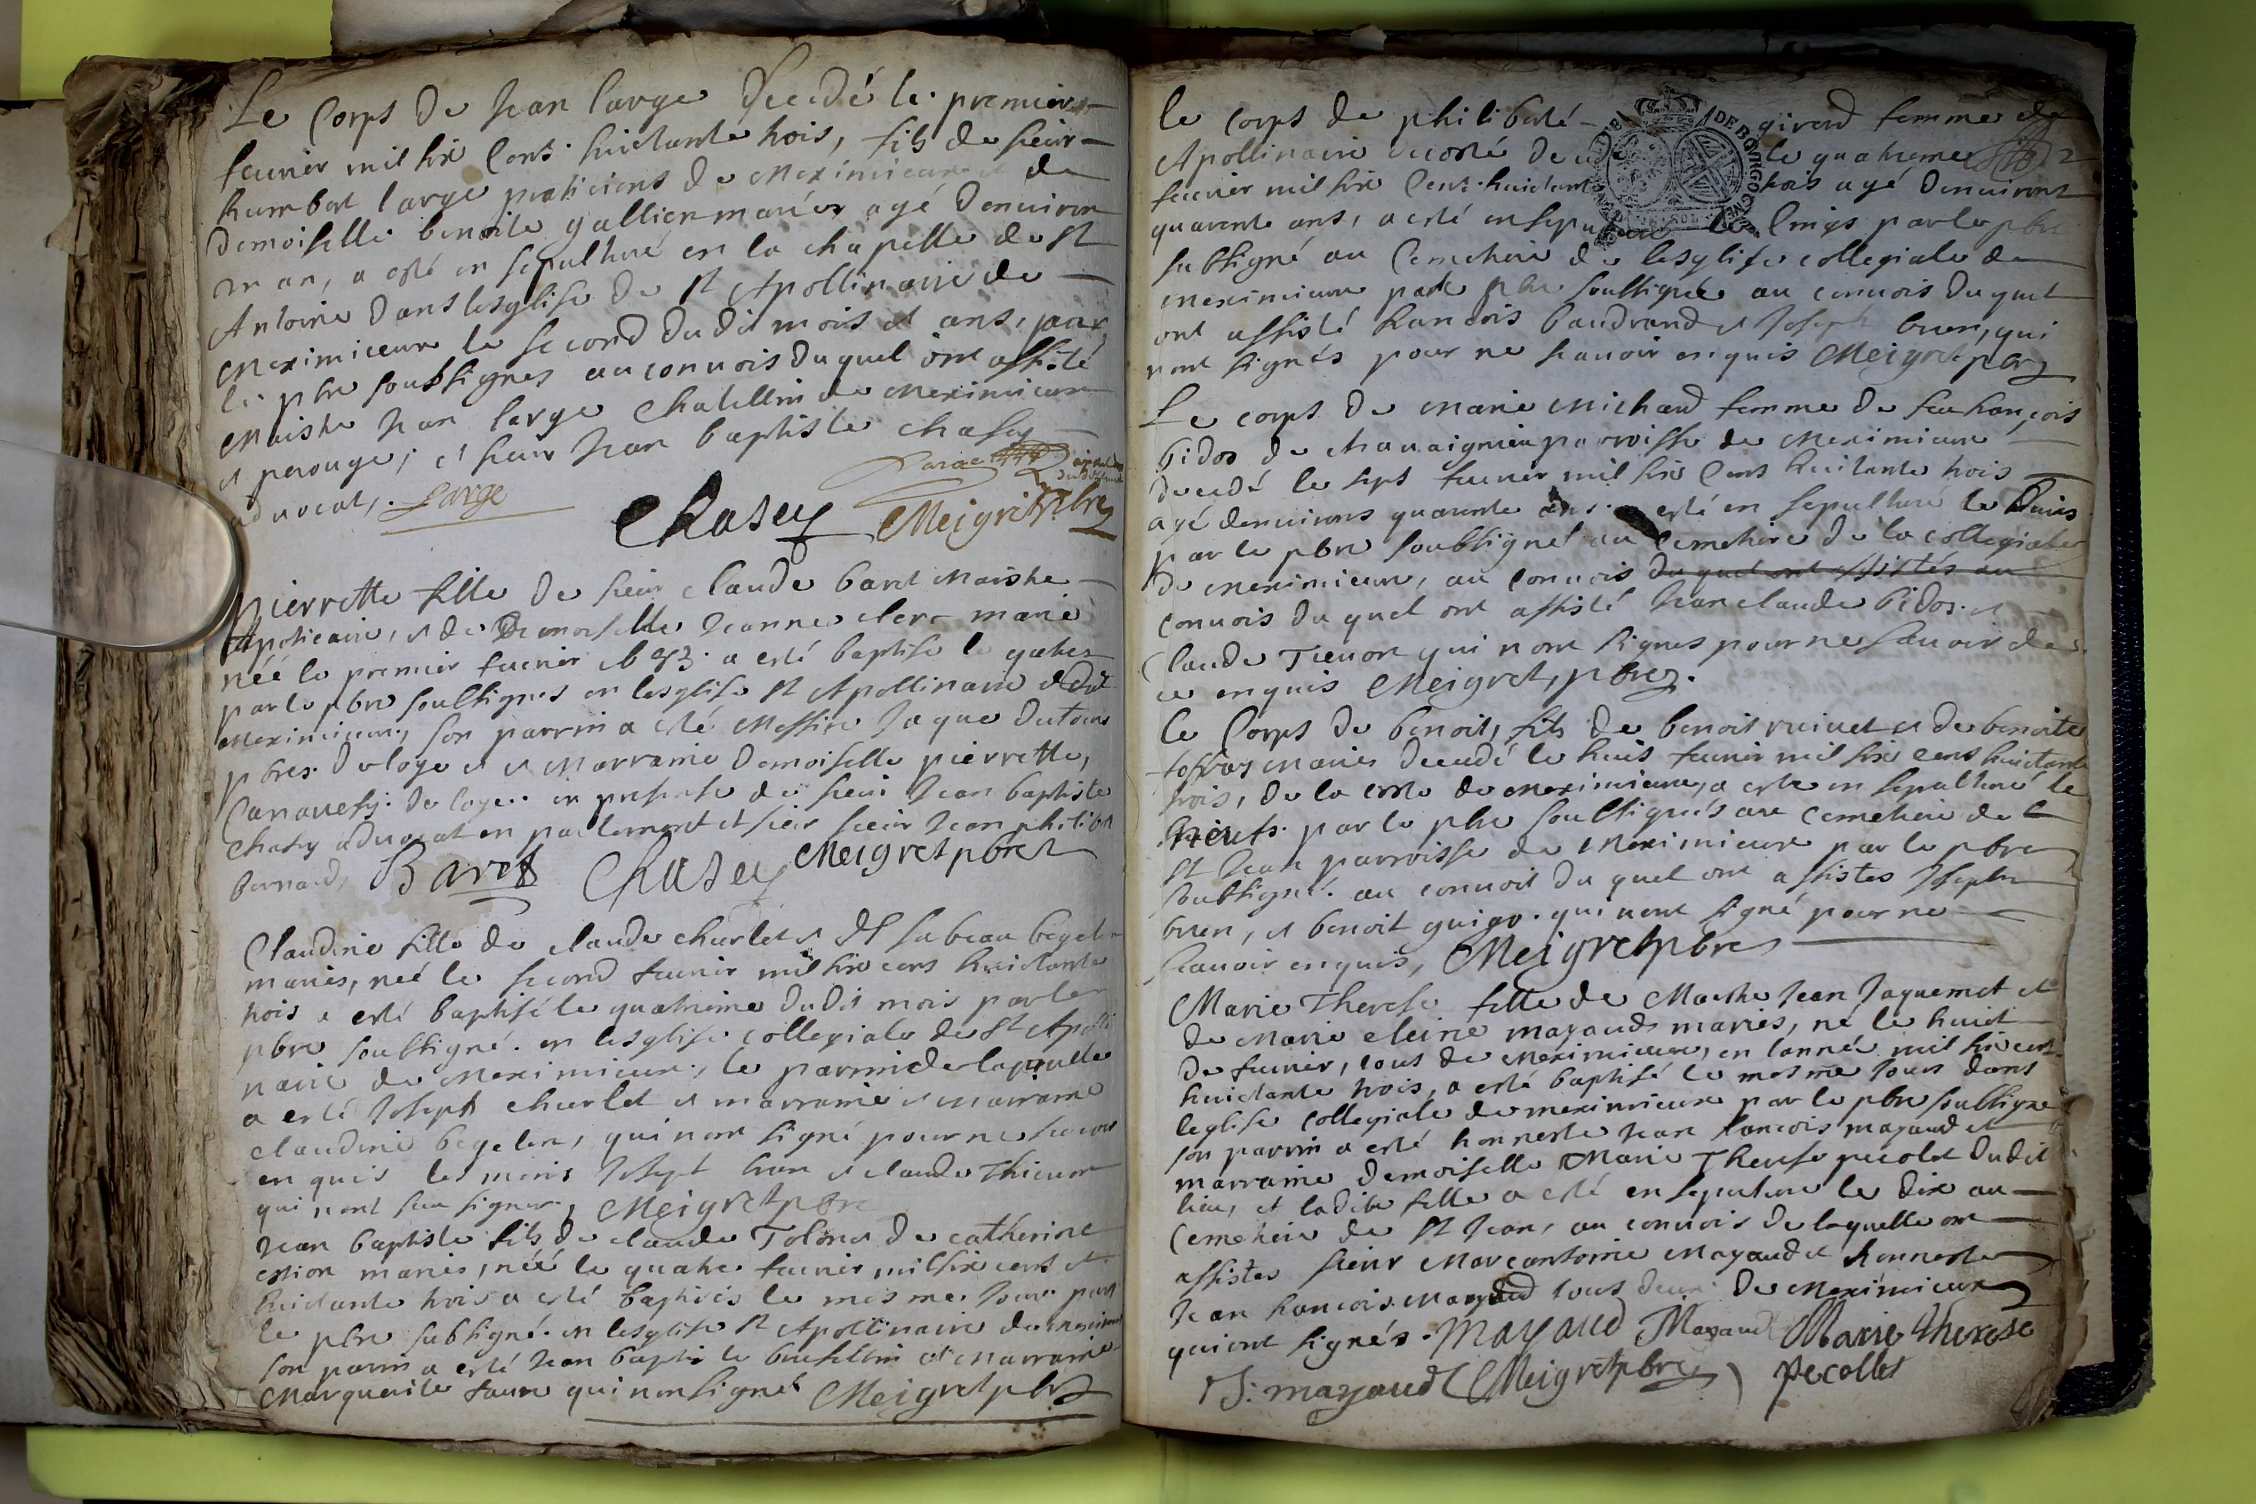 Le Corps de Jean large Decedé le premier
feurier mil six Cent huictante trois, fils de sieur
humbert large praticient de Meximieux et de
Demoiselle benoite gallien mariés agé denuiron
un an, a esté en sepulturé en la chapelle de St
Antoine dans lesglise de St Apollinaire de
Meximieux le second dudit mois et ans, par
le pbre soubsignes au conuois duquel ont assisté
Maistre Jean large Chatellin de Meximieux
et perouge, et sieur Jean baptiste chasey
aduocat, Large
Chasey Meigret pbre
Pierrette fille de sieur claude baret Maistre
Apoticaire, et de Demoiselle Jeanne clerc marié
néé le premier feurier a esté baptisé le quatre
par le pbre soubsignes en lesglise St Apollinaire
Meximieux, son parrin a esté Messire Jaque dutour
pbres de loye et Marraine Demoiselle pierrette,
de loye en presense de sieur Jean baptiste
chasey aduocat en parlement et sieur Jean
bernard, Baret Chasey Meigret pbre
Claudine fille de claude churlet et
mariés, néé le second feurier mil six cens huictante
trois a esté baptisé le quatrieme dudit mois par le
pbre soubsigné en lesglise collegiale de St Apolli
naire de Meximieux, le parrin de laquelle
a esté Joseph churlet et marraine et marraine
claudine begelen, qui nont signé pour ne scauoir
enquis Joseph et claude Thieuon
qui nont sceu signer, Meigret pbre
Jean baptiste fils de claude et de catherine
mariés, néé le quatre feurier mil six cens et
huictante trois a esté baptisés le mesme Jour par
le pbre subsigné en lesglise St Apollinaire de
son parrin a esté Jean baptiste et Marraine
Marguerite faure qui non signet Meigret pbre
le corps de philiberte girard femme de
Apollinaire le quatrieme
feurier mil six Cent huictante trois agé denuiront
quarente ans, a esté ensepulturé le cinqs par le pbre
subsigné au Cemetiere de lesglise collegiale de
meximieux par le pbre soubsignes au conuois duquel
ont assisté francois baudrand et Joseph buen, qui
nont signés pour ne scauoir enquis Meigret pbre
Le corps de Marie Michard femme de feu françois
bidos de chauaignieu parroisse de Meximieux
decedé le sept feurier mil six Cens huitante trois
agé denuirons quarente ans esté en sepulturé le huis
par le pbre soubsigné au Cemetiere de la collegiale
de Meximieux, au conuois duquel ont assistés au
conuois duquel ont assisté Jean claude bidos et
Claude Tieuon qui nont signes pour ne sauoir de
ce enquis Meigret, pbre
Le Corps de benoit, fils de benoit et de benoite
mariés decedé le huis feurier mil six cens huictante
trois, de la coste de Meximieux, a esté en sepulturé le
neufs par le pbre soubsignés au cemetiere de
St Jean parroisse de Meximieux par le pbre
soubsigné au conuoit duquel ont assistes Joseph
buen, et benoit guigo qui nont signé pour ne
scauoir enquis, Meigret pbre
Marie Therese fille de Maistre Jean Jaquemet et
de Marie mayaud mariés, né le huict
de feurier, tous de Meximieux, en lannée mil six cent
huictante trois, a esté baptisé le mesme Jour dans
leglise collegiale de meximieux par le pbre soubsigne
son parrin a esté honneste Jean francois mayaud et
marraine Demoiselle Marie Therese pecolet dudit
lieu, et ladite fille a esté ensepulture le dix au
Cemetiere de St Jean, au conuois de laquelle ont
assistes sieur Marcantoine Mayaud et honneste
Jean francois Mayaud tous deux de Meximieux
qui ont signés Mayaud Mayaud Marie therese
J: mayaud Meigret pbre pecollet